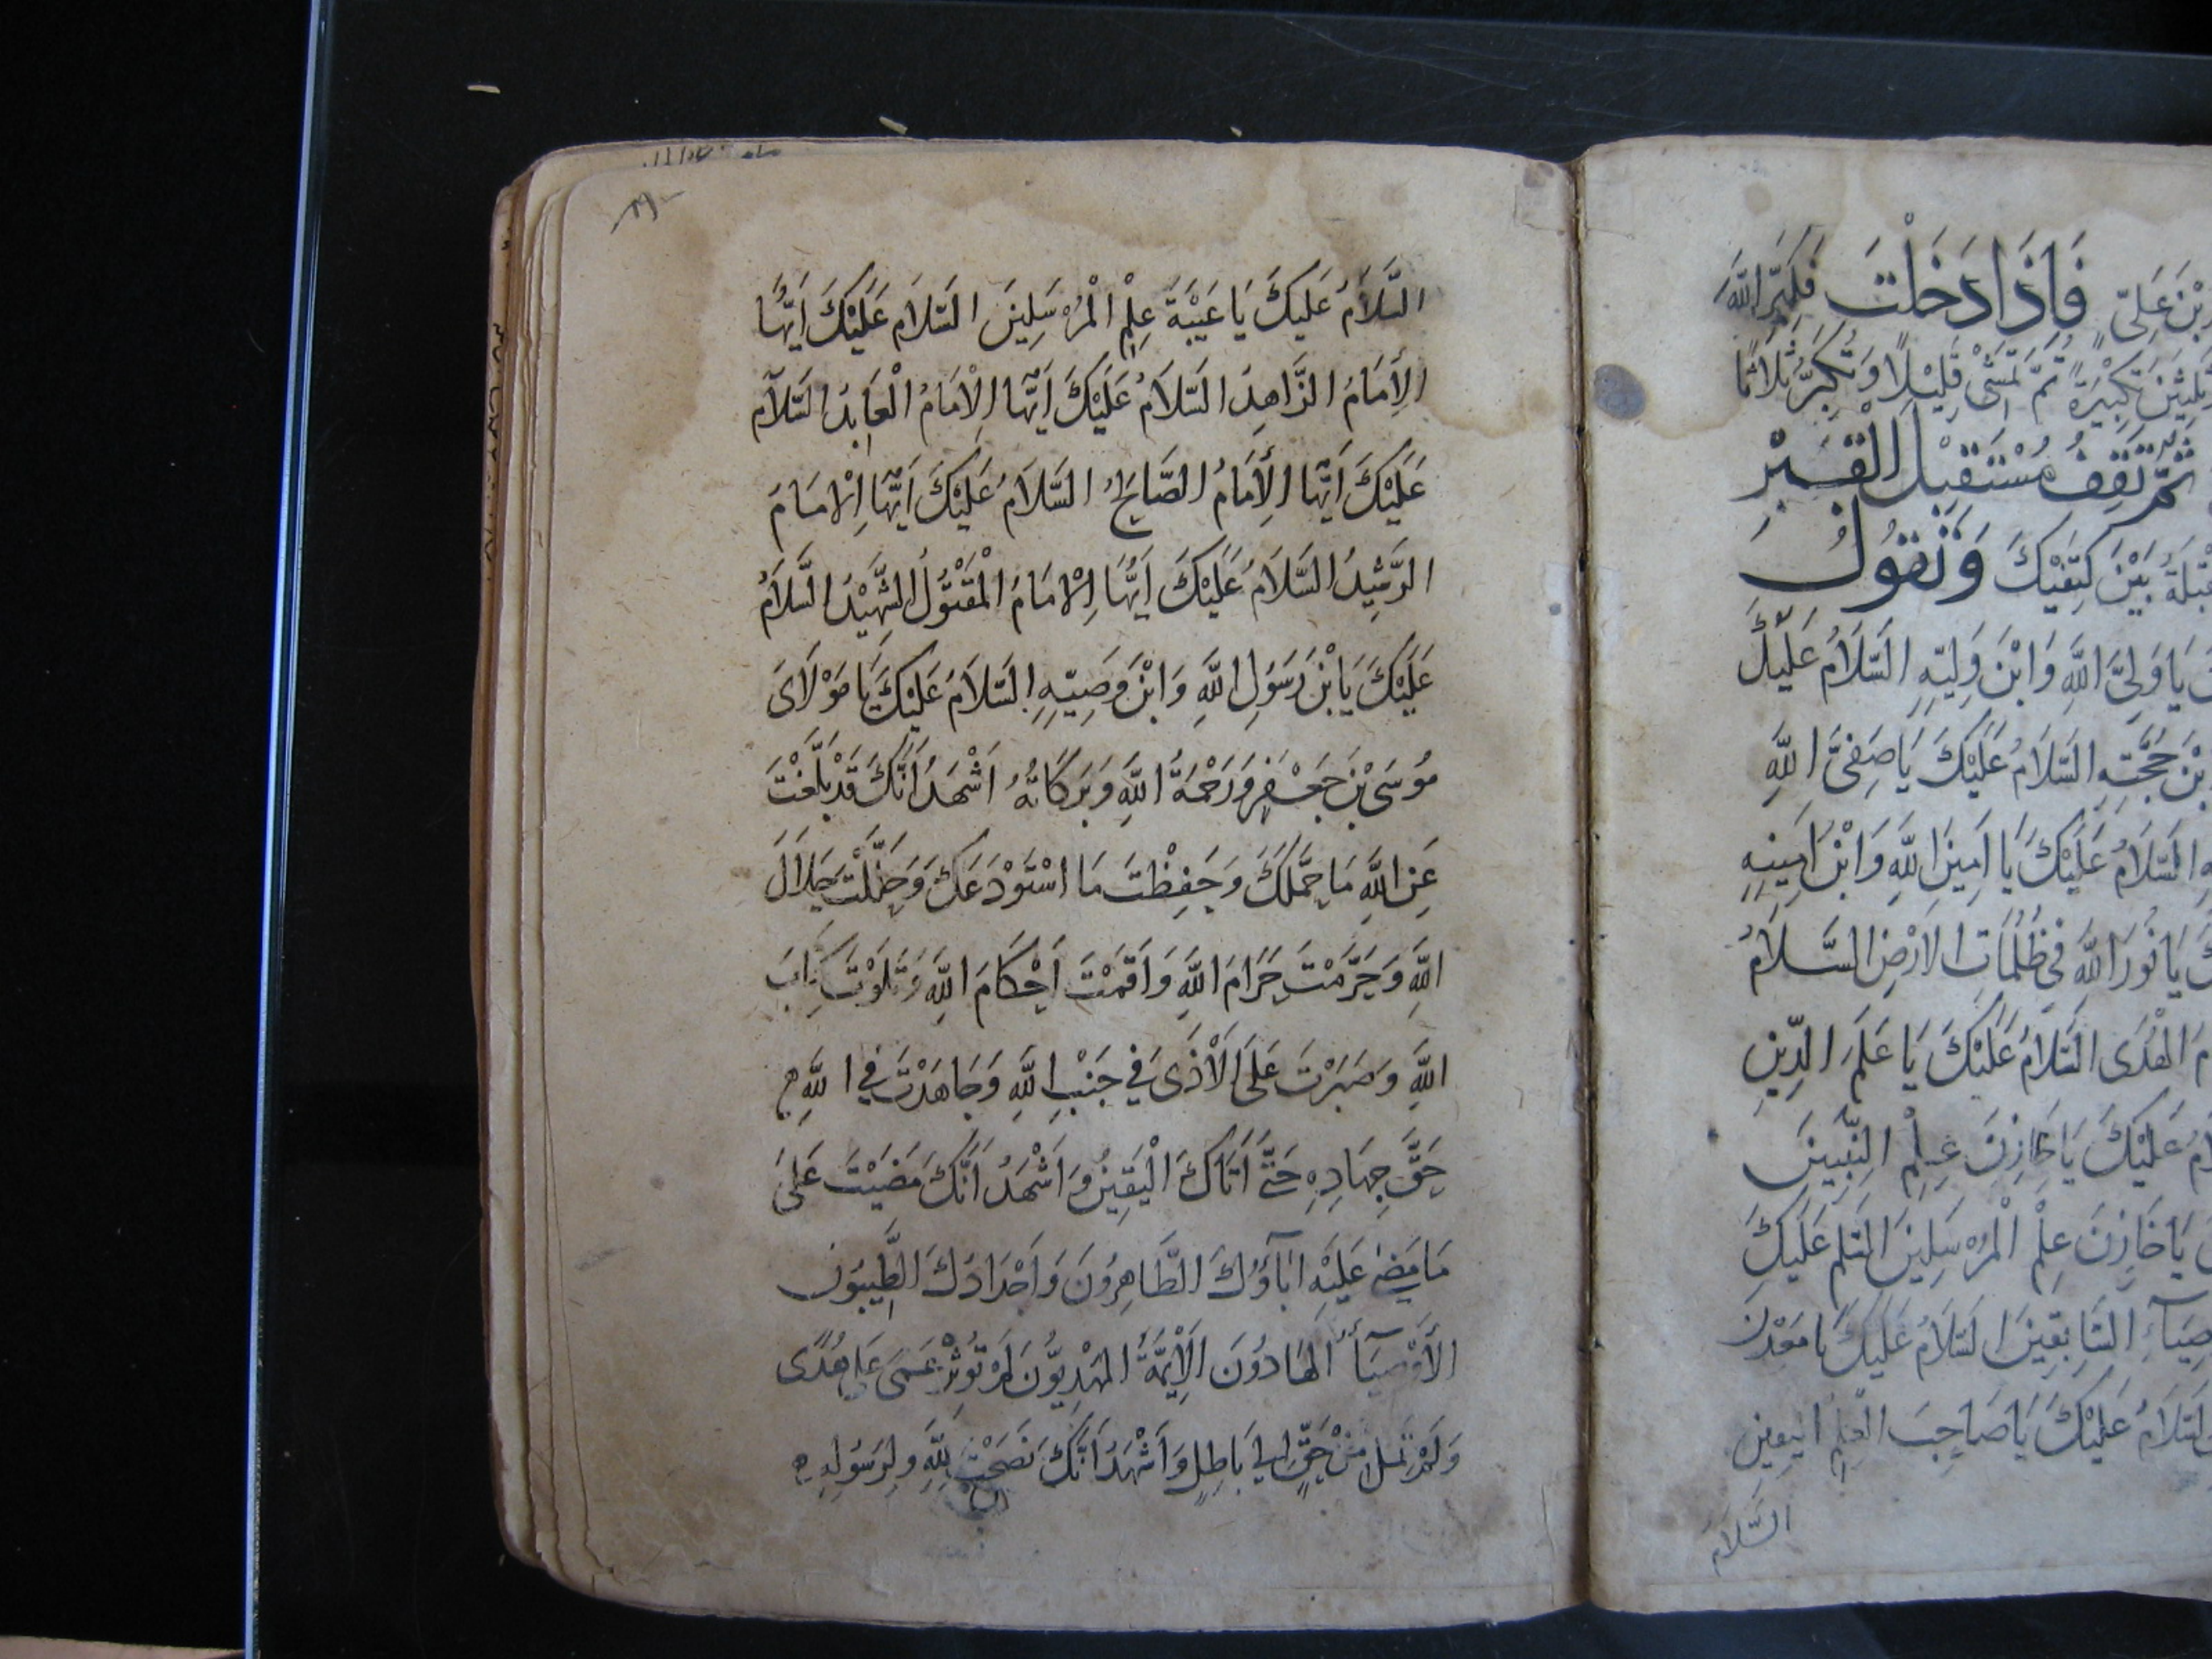 بْنَ عَلِىّ فَاِذَا دَخَلْتَ فَكَبِّرِ اللهَ
تَكْبِيْرَةً ثُمَّ تَمْشَىْ قَلِيْلًا وَتُكَبِّرُ ثَلَاثًا
ثُمَّ تَقِفُ مُسْتَقْبِلَ الْقَبْرِ
بَيْنَ كَتِفَيْكَ وَتَقُوْلُ
يَا وَلِىَّ اللهِ وَابْنَ وَلِيِّهِ السَّلَامُ عَلَيْكَ
بْنَ حُجَّتِهِ السَّلَامُ عَلَيْكَ يَا صَفِىَّ اللهِ
السَّلَامُ عَلَيْكَ يَا اَمِينَ اللهِ وَابْنَ اَمِينِهِ
يَا نُورَ اللهِ فِى ظُلُمَاتِ الْاَرْضِ السَّلَامُ
الْهُدَى السَّلَامُ عَلَيْكَ يَا عَلَمَ الدِّينِ
عَلَيْكَ يَا خَازِنَ عِلْمِ النَّبِيِّينَ
يَا خَازِنَ عِلْمِ الْمُرْسَلِينَ السَّلَم عَلَيْكَ
السَّابِقِينَ السَّلَامُ عَلَيْكَ يَا مَعْدِنَ
السَّلَامُ عَلَيْكَ يَا صَاحِبَ الْعِلْمِ اليَقِينِ
السَّلَامُ
السَّلَامُ عَلَيْكَ يَا عَيْبَةَ عِلْمِ الْمُرْسَلِينَ السَّلَامُ عَلَيْكَ اَيُّهَا
الْأِمَامُ الزَّاهِدُ السَّلَامُ عَلَيْكَ اَيُّهَا الْاِمَامُ الْعَابِدُ السَّلَامُ
عَلَيْكَ اَيُّهَا الْأِمَامُ الصَّالِحُ السَّلَامُ عَلَيْكَ اَيُّهَا الْاِمَامُ
الرَّشِيدُ السَّلَامُ عَلَيْكَ اَيُّهَا الْاِمَامُ الْمَقْتُوْلُ الشَّهِيْدُ السَّلَامُ
عَلَيْكَ يَابْنَ رَسُوْلِ اللهِ وَابْنَ وَصِيِّهِ السَّلَامُ عَلَيْكَ يَا مَوْلَاىَ
مُوْسَى بْنَ جَعْفَرٍ وَرَحْمَةُ اللهِ وَبَرَكَاتُهُ اَشْهَدُ اَنَّكَ قَدْ بَلَّغْتَ
عَنِ اللهِ مَا حَمَّلَكَ وَحَفِظْتَ مَا اسْتَوْدَعَكَ وَحَلَّلْتَ حَلَالَ
اللهِ وَحَرَّمْتَ حَرَامَ اللهِ وَاَقَمْتَ اَحْكَامَ اللهِ وَتَلَوْتَ كِتَابَ
اللهِ وَصَبَرْتَ عَلَى الْاَذَى فِى جَنْبِ اللهِ وَجَاهَدْتَ فِى اللهِ
حَقَّ جِهَادِهِ حَتَّى اَتَاكَ الْيَقِينُ وَاَشْهَدُ اَنَّكَ مَضَيْتَ عَلَى
مَا مَضَى عَلَيْهِ اٰبَآؤُكَ الطَّاهِرُونَ وَاَجْدَادُكَ الطَّيِّبُونَ
الْأَوْصِيَآءُ الْهَادُونَ الْأَئِمَّةُ الْمَهْدِيُّونَ لَمْ تُؤْثِرْ عَمَى عَلَى هُدًى
وَلَمْ تَمِلْ مِنْ حَقٍّ اِلَى بَاطِلٍ وَاَشْهَدُ اَنَّكَ نَصَحْتَ لِلّٰهِ وَلِرَسُوْلِهِ